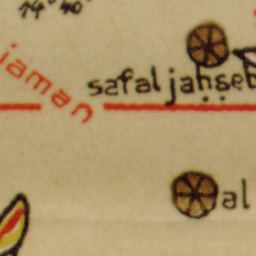 14° 40°
jaman
safal jaḥṣeb
al